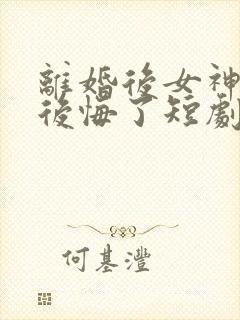 離婚後女神
後悔了短劇
何基灃